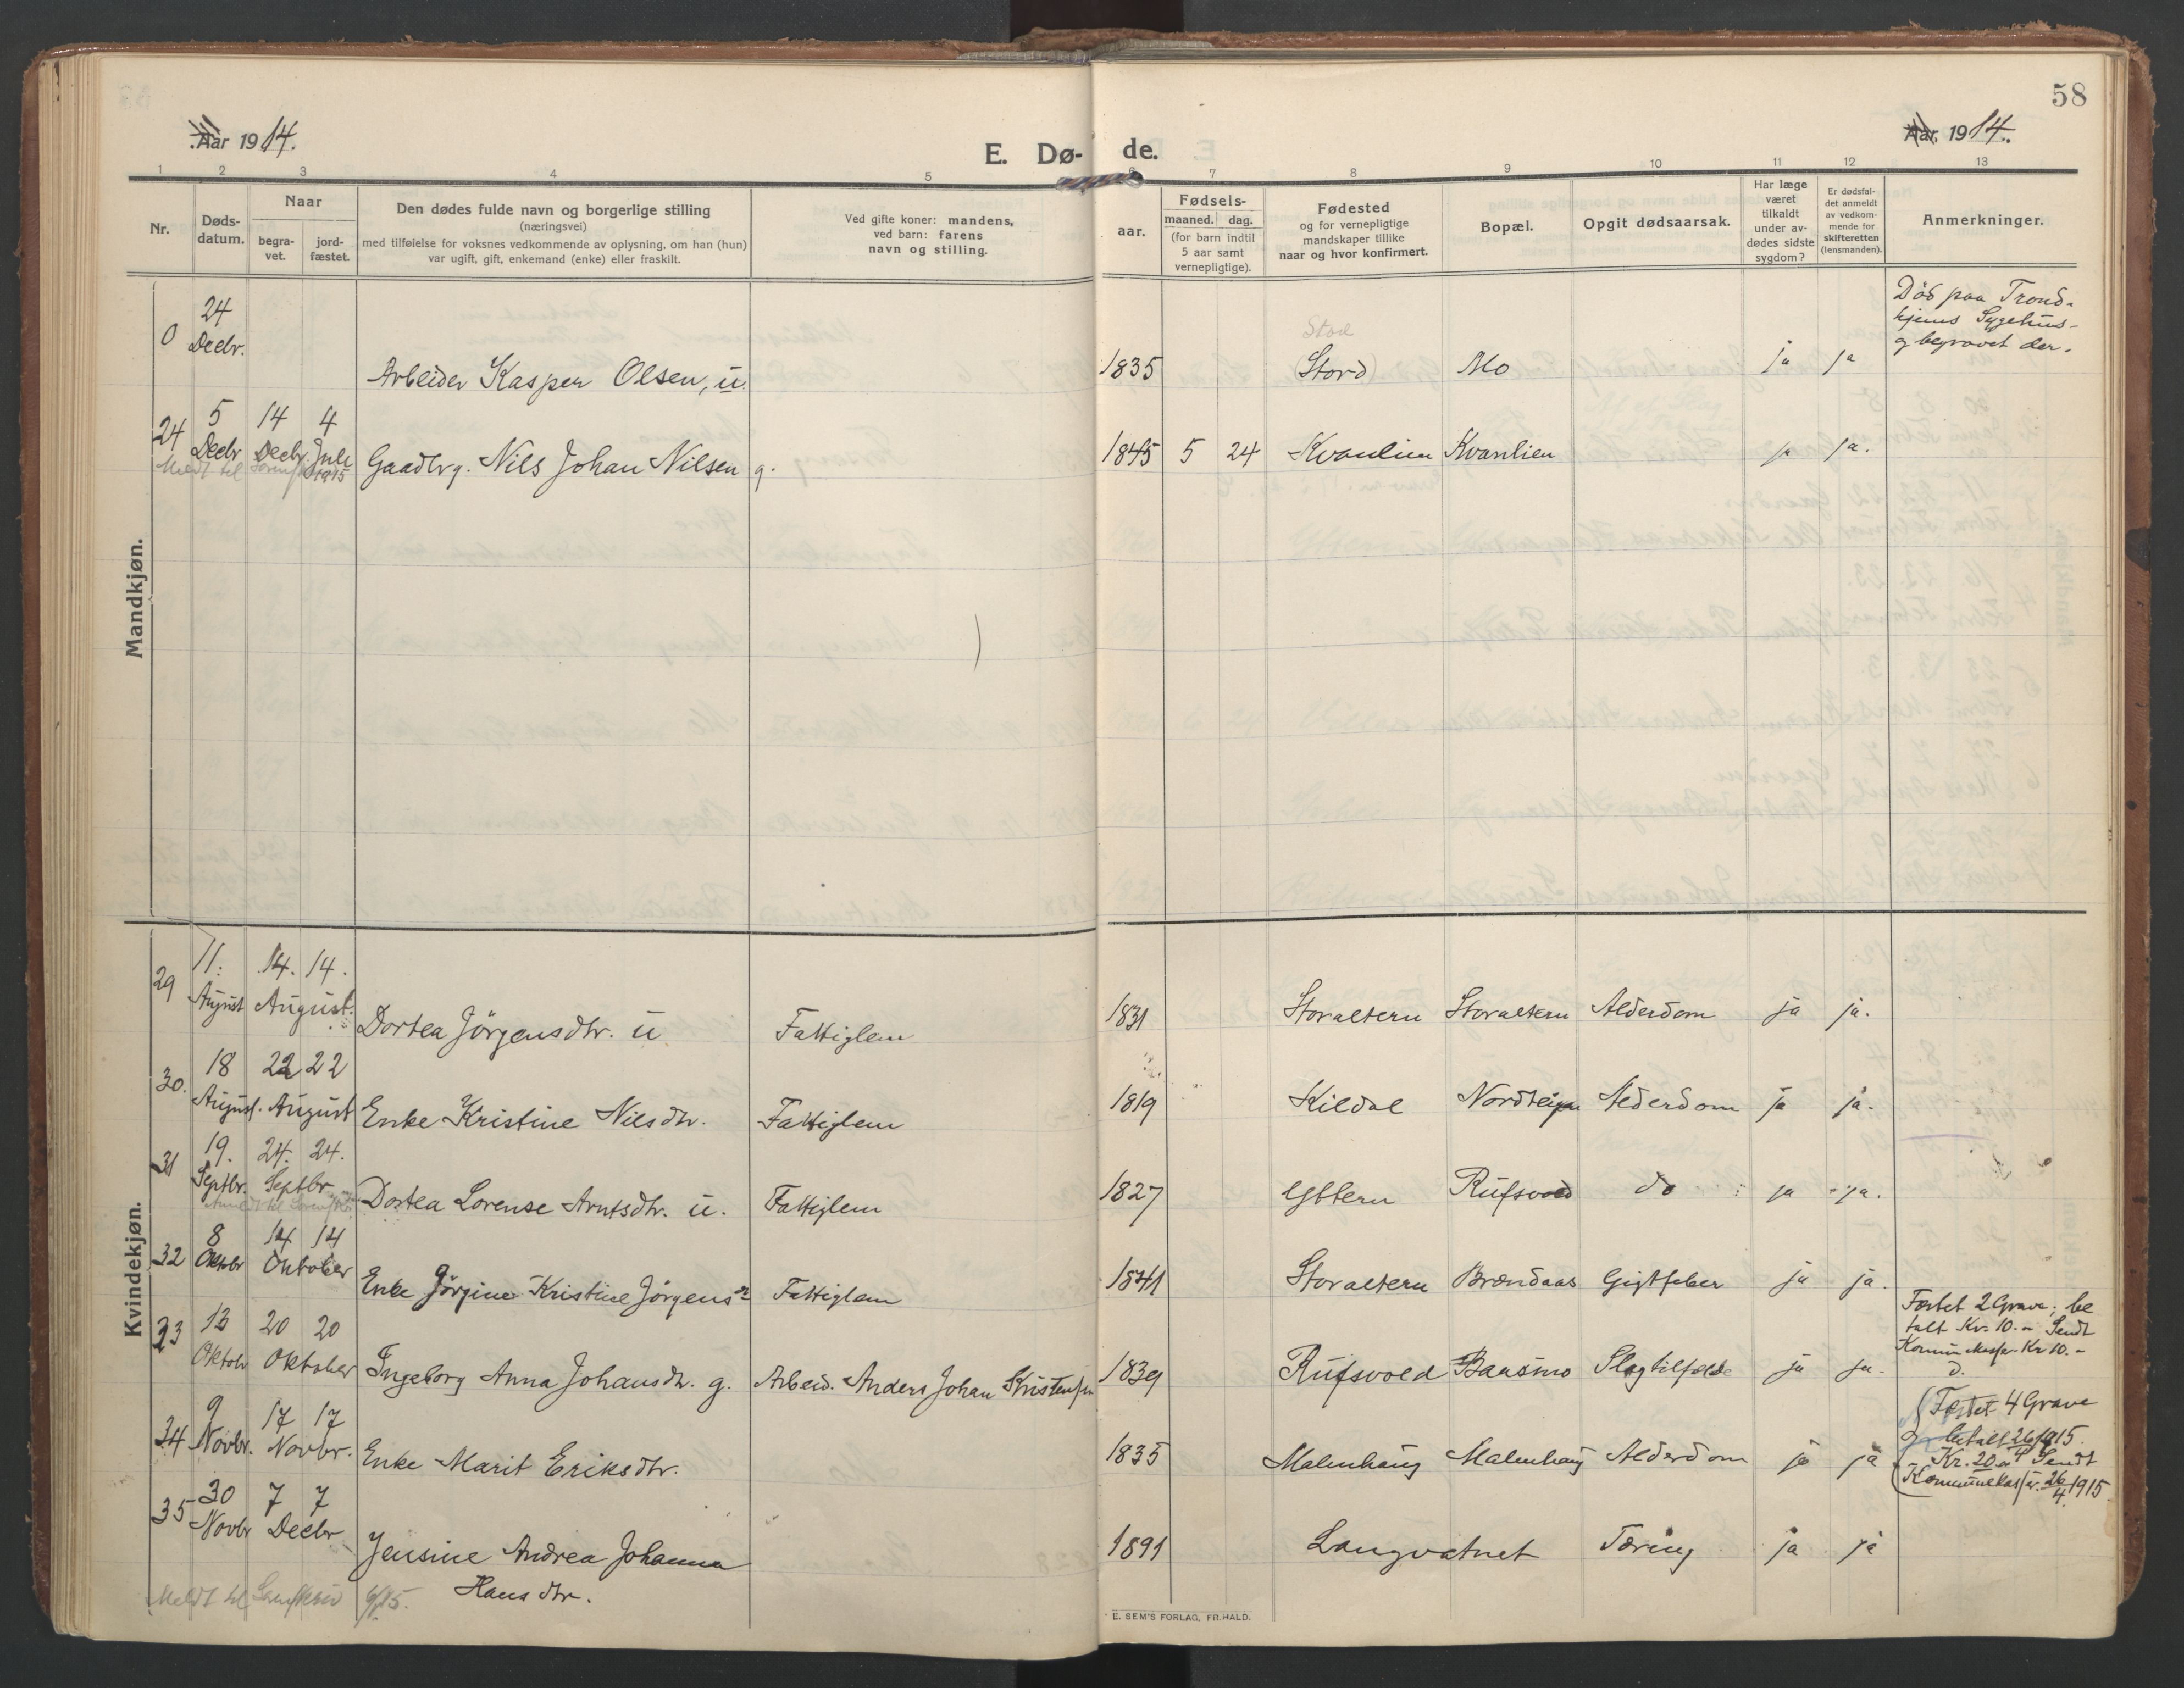 58
Aar 1914.
E. Dø- de.
Aar. 1914.
1 2 3 4 5 6 7 8 9 10 11 12 13
Nr.
Døds-
datum.
Naar
begra-
vet.
jord-
fæstet.
Den dødes fulde navn og borgerlige stilling
(næringsvei)
med tilføielse for voksnes vedkommende av oplysning, om han (hun)
var ugift, gift, enkemand (enke) eller fraskilt.
Ved gifte koner: mandens,
ved barn: farens
navn og stilling.
aar.
Fødsels-
maaned. dag.
(for barn indtil
5 aar samt
vernepligtige).
Fødested
og for vernepligtige
mandskaper tillike
naar og hvor konfirmert.
Bopæl.
Opgit dødsaarsak.
Har læge
været
tilkaldt
under av-
dødes sidste
sygdom?
Er dødsfal-
det anmeldt
av vedkom-
mende for
skifteretten
(lensmanden).
Anmerkninger.
Mandkjøn.
0 24 Decbr. Arbeider Kasper Olsen, u. 1835 Stod (Stord) Mo ja ja
Død paa Trond-
hjems Sygehus-
og begravet der.
24 5 Decbr 14 Decbr. 4 Juli 1915 Gaadbrg. Nils Johan Nilsen g. 1845 5 24 Kvanlien Kvanlien ja ja.
Meldt til
Kvindekjøn.
29 11. August 14. 14. August. Dortea Jörgensdtr. u Fattiglem 1831 Storaltern Storaltern Alderdom ja ja.
30. 18 August. 22 22 August Enke Kristine Nilsdtr. Fattiglem 1819 Kildal Nordteigen Alderdom ja ja.
31 19. Septbr. 24. 24. Septbr Dortea Lorense Arntsdtr. u. Fattiglem 1827 Yttern Rufsvold do ja ja.
32 8 Oktobr 14 14 Oktober Enke Jörgine Kristine Jörgensdr Fattiglem 1841 Storaltern Brændaas Gigtfeber ja ja.
33 13 Oktobr 20 20 Oktober Ingeborg Anna Johansdtr. g. Arbeid. Anders Johan Kristensen 1839 Rufsvold Baasmo Slagtilfælde ja ja.
Fæstet 2 Grave; be
talt Kr. 10.- Sendt
Kommunekasser Kr 10.-
D.
34 9 Novbr. 17 17 Novbr. Enke Marit Eriksdtr. 1835 Malmhaug Malmhaug Alderdom ja ja
Fæstet 4 Grave
betalt 26/4 1915.
Kr. 20.- Sendt
Kommunekasser. 26/4 1915.
35 30 Novbr 7 7 Decbr Jensine Andrea Johanna 1891 Langvatnet Tæring ja ja
Hansdtr.
Meldt til Sorenskriv 6/1 15.
E. SEM'S FORLAG, FR.HALD.